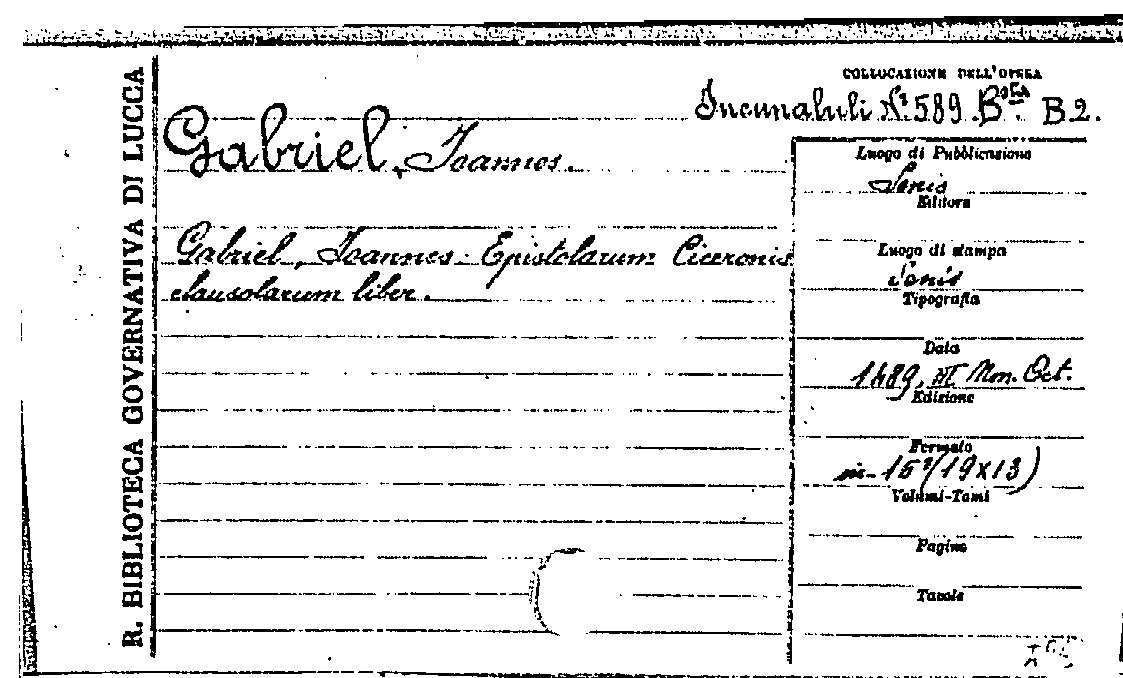 R. BIBLIOTECA GOVERNATIVA DI LUCCA
COLLOCAZIONE DELL'OPERA
Incunabuli N.º 589. B.ºᵗᵃ B 2.
Gabriel, Joannes.
Gabriel, Joannes. Epistolarum Ciceronis
clausolarum liber.
Luogo di Pubblicazione
Senis
Editore
Luogo di stampa
Senis
Tipografia
Data
1489, III Non. Oct.
Edizione
Formato
in-15º (19x13)
Volumi-Tomi
Pagine
Tavole